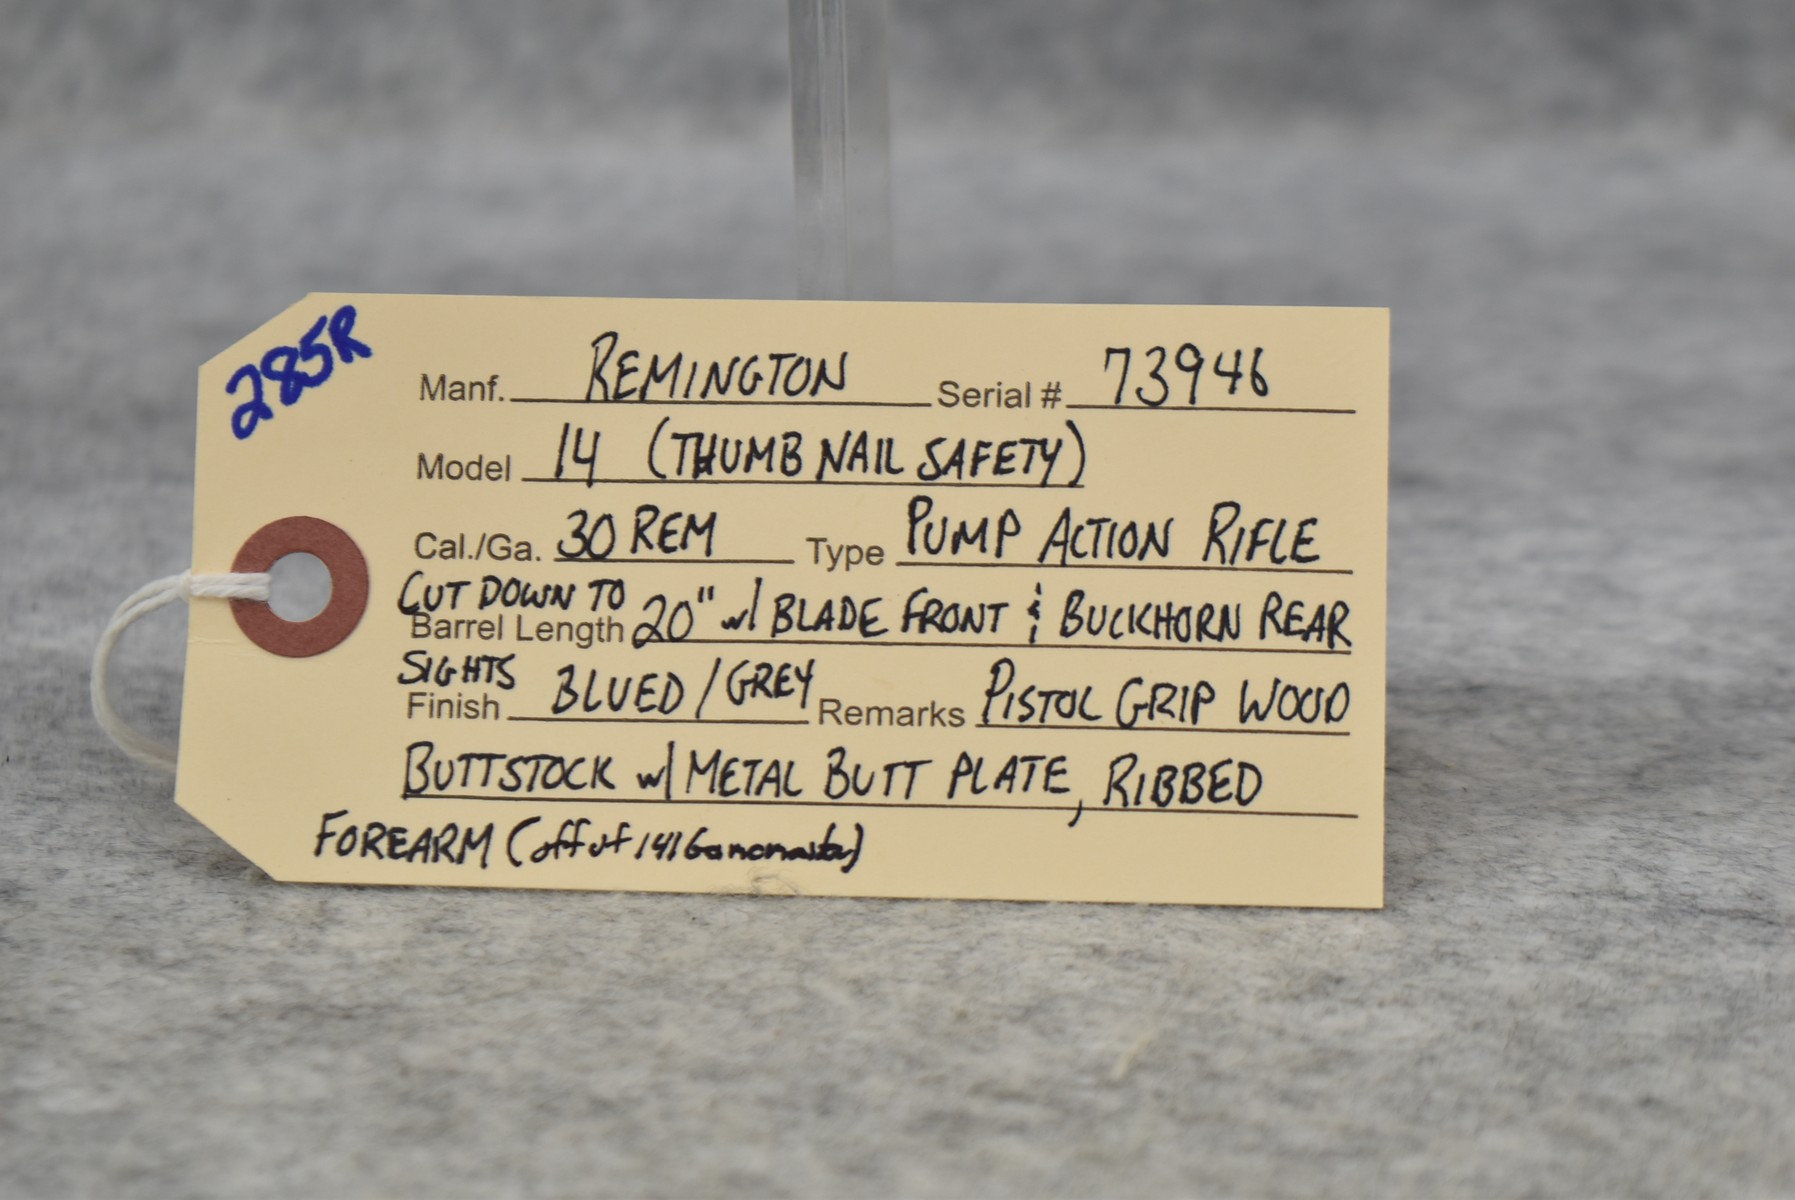 285R
Manf. REMINGTON Serial # 73946
Model 14 (THUMB NAIL SAFETY)
Cal./Ga. 30 REM Type PUMP ACTION RIFLE
CUT DOWN TO
Barrel Length 20" w/ BLADE FRONT & BUCKHORN REAR
SIGHTS
Finish BLUED / GREY Remarks PISTOL GRIP WOOD
BUTTSTOCK w/ METAL BUTT PLATE, RIBBED
FOREARM (off of 141 Gamemaster)